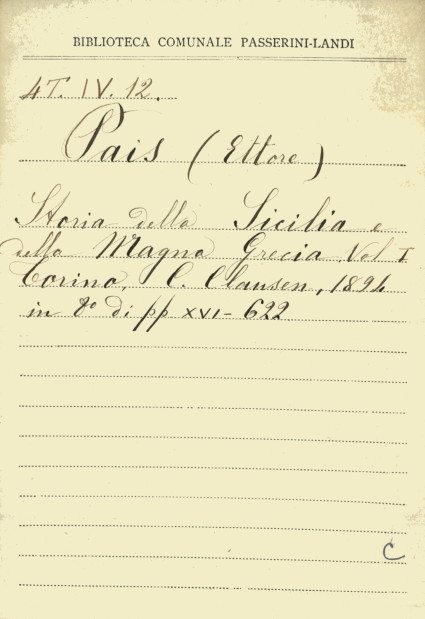 BIBLIOTECA COMUNALE PASSERINI-LANDI
4T. IV. 12.
Pais (Ettore)
Storia della Sicilia e
della Magna Grecia Vol I
Torino, C. Clausen, 1894
in 8° di pp XVI - 622
C